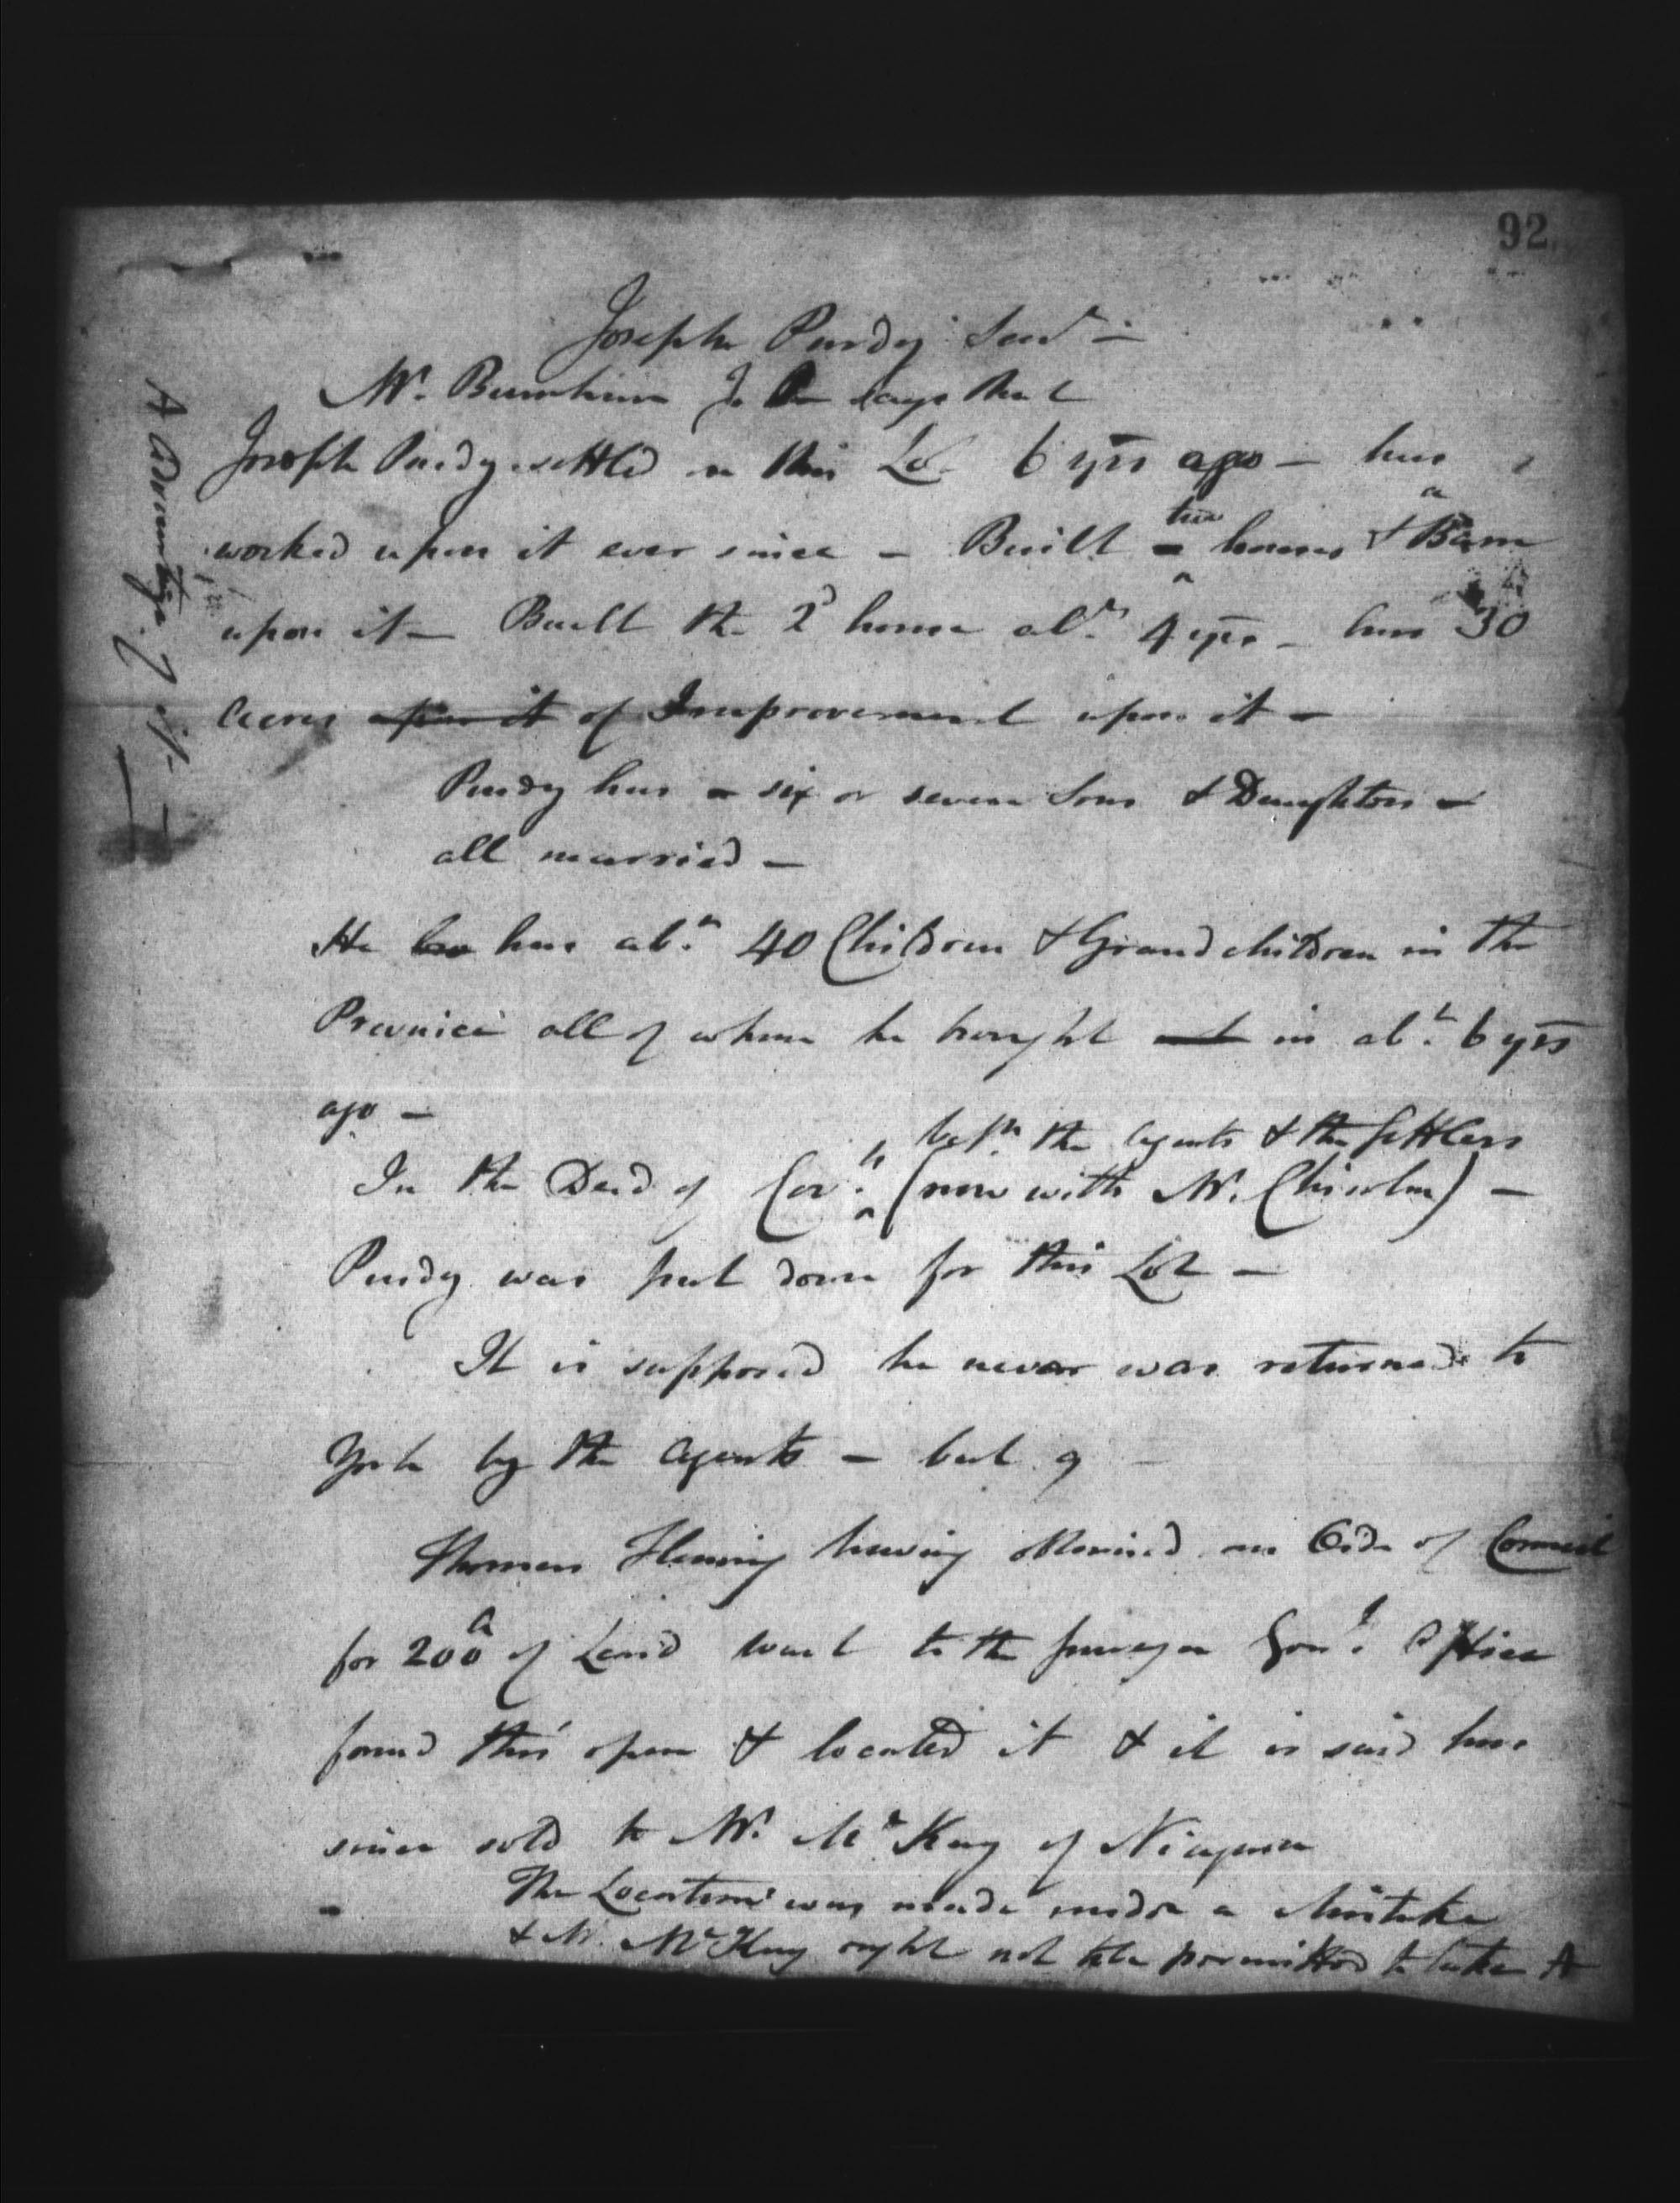 92
Joseph Purdy Senr —
Mr. Burnham says that
Joseph Purdy settled on this Lot 6 yrs ago — has
worked upon it ever since — Built two houses & a Barn
upon it — Built the 2d house abt. 4 yrs — has 30
acres upon it of Improvement upon it —
Purdy has six or seven Sons & Daughters —
all married —
He has abt. 40 Children & Grand children in the
Province all of whom he brought in abt. 6 yrs
ago —
betn. the agents & the Settlers
In the Deed of Covt. (now with Mr. Chisolm) —
Purdy was put down for this Lot —
It is supposed he never was returned to
York by the agents — but
Thomas Fleming having obtained an Order of Council
for 200 a of Land went to the Surveyor Genl. Office
found this open & located it & it is said has
since sold to Mr. McKay of Niagara
The Location was made under a Mistake
& Mr. McKay ought not to be permitted to take A
A advantage of it —